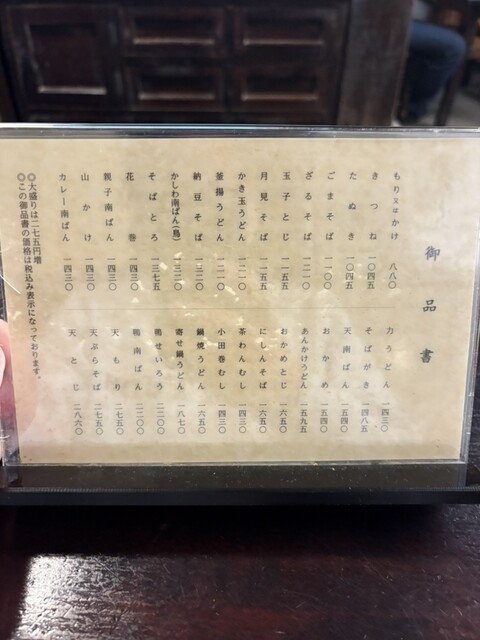 御品書
もり又はかけ 八八〇
きつね 一〇四五
たぬき 一〇四五
ごまそば 一一〇〇
ざるそば 一二一〇
玉子とじ 一一五五
月見そば 一一五五
かき玉うどん 一二一〇
釜揚うどん 一二一〇
納豆そば 一三二〇
かしわ南ばん(鳥) 一三二〇
そばとろ 一三七五
花巻 一四三〇
親子南ばん 一四三〇
山かけ 一四三〇
カレー南ばん 一四三〇
力うどん 一四三〇
そばがき 一四八五
天南ばん 一五四〇
おかめ 一五四〇
あんかけうどん 一五九五
おかめとじ 一六五〇
にしんそば 一六五〇
茶わんむし 一四三〇
小田巻むし 一四三〇
鍋焼うどん 一六五〇
寄せ鍋うどん 一八七〇
鴨せいろう 二二〇〇
鴨南ばん 二二〇〇
天もり 二七五〇
天ぷらそば 二七五〇
天とじ 二八六〇
◎大盛りは二七五円増
◎この御品書の価格は税込み表示になっております。